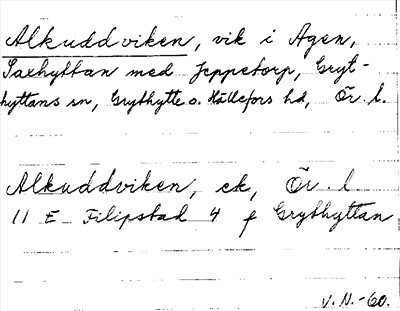 Alkuddviken, vik i Agen,
Saxhyttan med Jeppetorp, Gryt-
hyttans sn, Grythytte o. Hällefors hd, Ör. l.
Alkuddviken, ek, Ör. l
11 E Filipstad 4 f Grythyttan
V. N. -60.